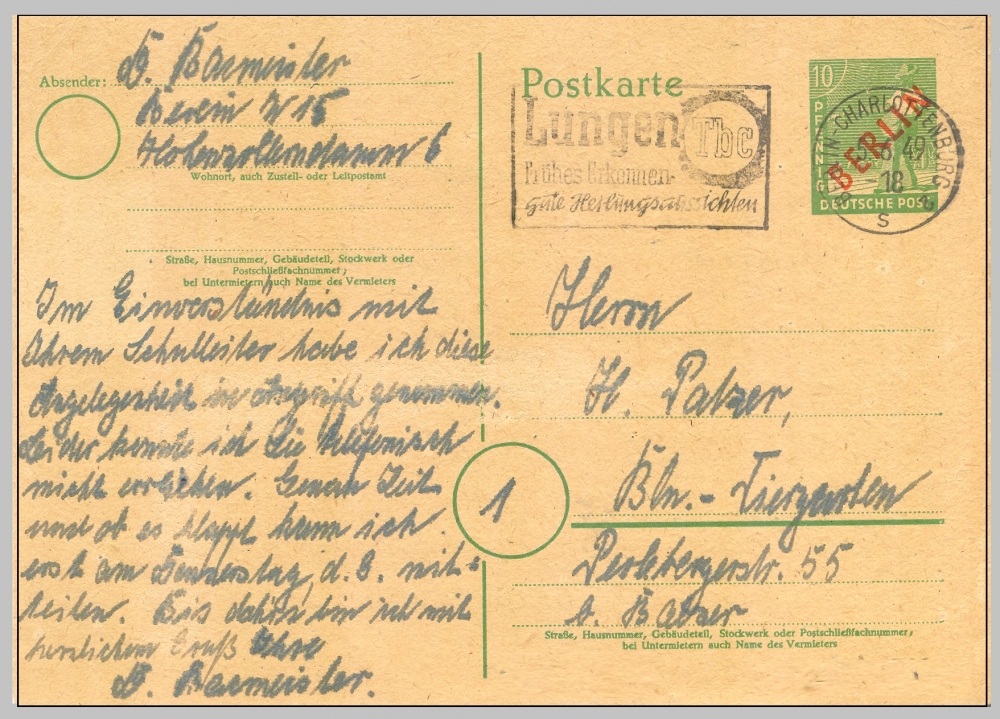 Absender: D. Baemeister
Berlin W 15
Hohenzollerndamm 6
Wohnort, auch Zustell- oder Leitpostamt
Straße, Hausnummer, Gebäudeteil, Stockwerk oder
Postschließfachnummer;
bei Untermietern auch Name des Vermieters
Im Einverständnis mit
Ihrem Schulleiter habe ich diese
Angelegenheit in Angriff genommen.
Leider konnte ich Sie telefonisch
nicht erreichen. Genaue Zeit
und ob es klappt kann ich
erst am Donnerstag, d. 8. mit-
teilen. Bis dahin bin ich mit
herzlichem Gruß Ihre
D. Baemeister.
Postkarte
Lungen Tbc
Frühes Erkennen-
gute Heilungsaussichten
10
PFENNIG
DEUTSCHE POST
BERLIN
BERLIN-CHARLOTTENBURG
49
18
S
Herrn
H. Patzer,
1
Bln.- Tiergarten
Perlebergerstr. 55
b. Balzer
Straße, Hausnummer, Gebäudeteil, Stockwerk oder Postschließfachnummer;
bei Untermietern auch Name des Vermieters